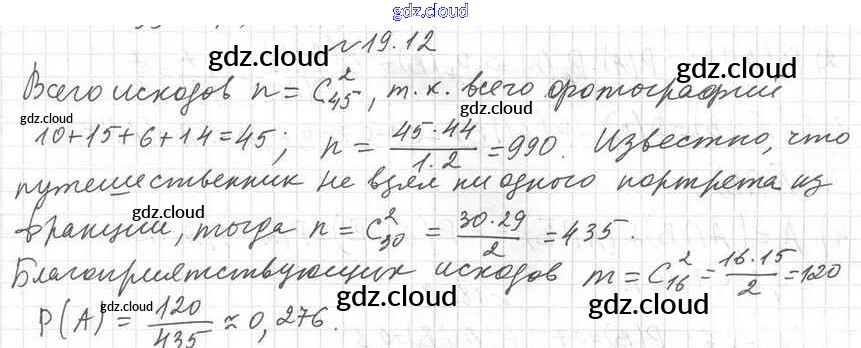 gdz.cloud
№19.12
gdz.cloud gdz.cloud
Всего исходов n = C₄₅², т.к. всего фотографий
gdz.cloud gdz.cloud
10+15+6+14=45; n = 45·44/1·2 = 990. Известно, что
gdz.cloud
путешественник не взял ни одного портрета из
gdz.cloud gdz.cloud
Франции, тогда n = C₃₀² = 30·29/2 = 435.
Благоприятствующих исходов m = C₁₆² = 16·15/2 = 120
gdz.cloud gdz.cloud gdz.cloud
P(A) = 120/435 ≈ 0,276.